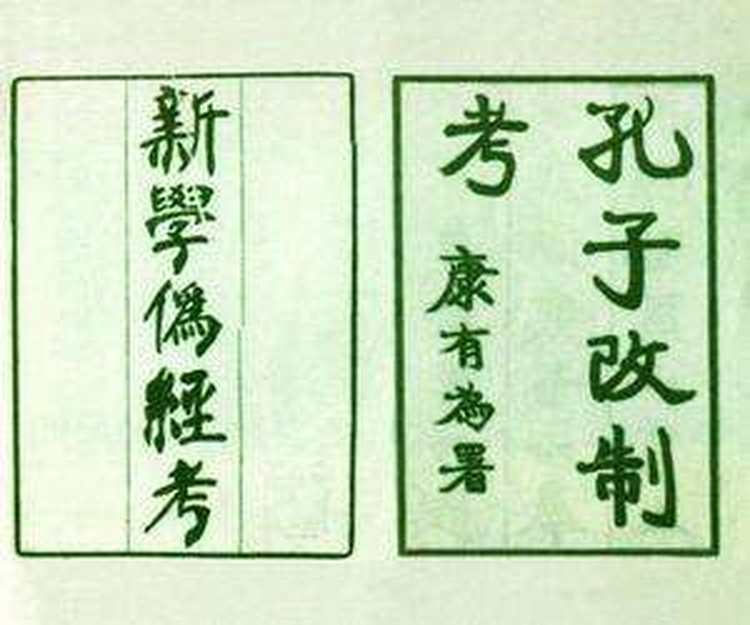 孔子改制
考 康有為署
新學偽經考